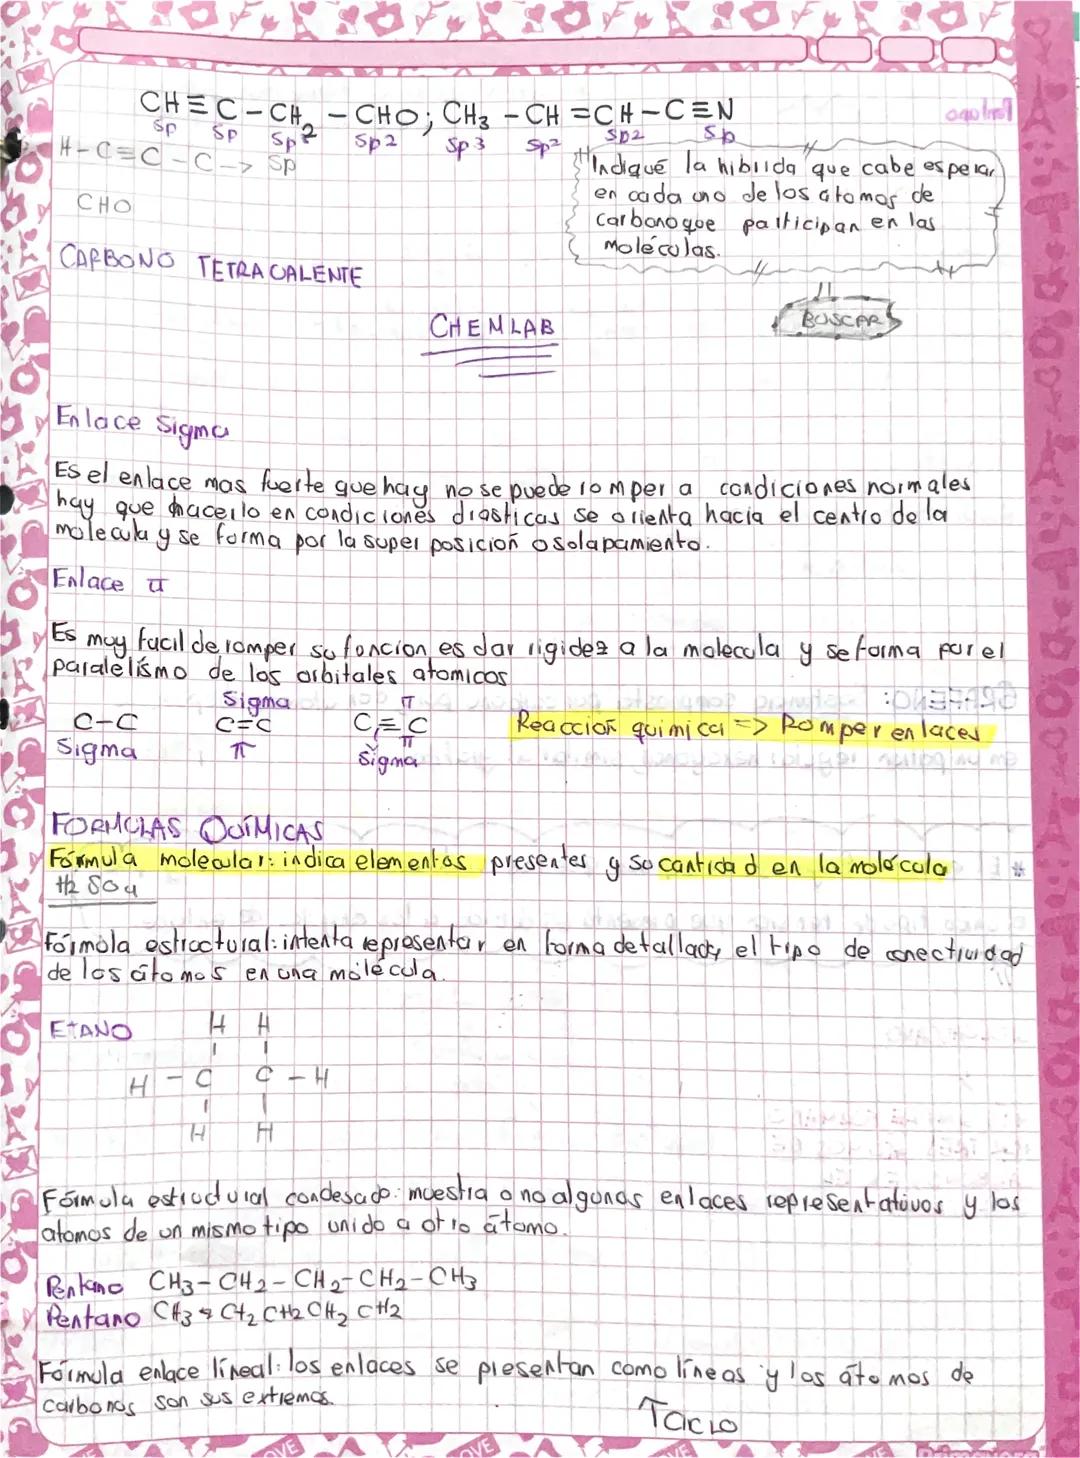 CH≡C-CH2-CHO; CH3-CH=CH-C≡N
sp sp sp2 sp2 sp3 sp2 sp2 sp
H-C≡C-C-> sp
CHO
"Indiqué la hibiida que cabe esperar
en cada uno de los átomos de
carbono que participan en las
moléculas.
BUSCAR
CARBONO TETRAVALENTE
CHEMLAB
Enlace sigma
Es el enlace mas fuerte que hay no se puede romper a condiciones normales
hay que hacerlo en condiciones drasticas se orienta hacia el centro de la
molecula y se forma por la super posición o solapamiento.
Enlace π
Es muy facil de romper su funcion es dar rigidez a la molecula y se forma por el
paralelísmo de los orbitales atomicos
Sigma π
C-C C=C C≡C Reacción quimica => Romper enlaces
Sigma π π
sigma
FORMULAS QUÍMICAS
Fórmula molecular: indica elementos presentes y su cantidad en la molécula
H2SO4
Fórmula estructural: intenta representar en forma detallada, el tipo de conectividad
de los átomos en una molécula.
ETANO
H H
H - C C - H
H H
Fórmula estructural condesado: muestra o no algunos enlaces representativos y los
atomos de un mismo tipo unido a otro átomo.
Pentano CH3-CH2-CH2-CH2-CH3
Pentano CH3 CH2 CH2 CH2 CH2
Fórmula enlace líneal: los enlaces se presentan como líneas y los átomos de
carbonos son sus extremos.
LOVE
LOVE